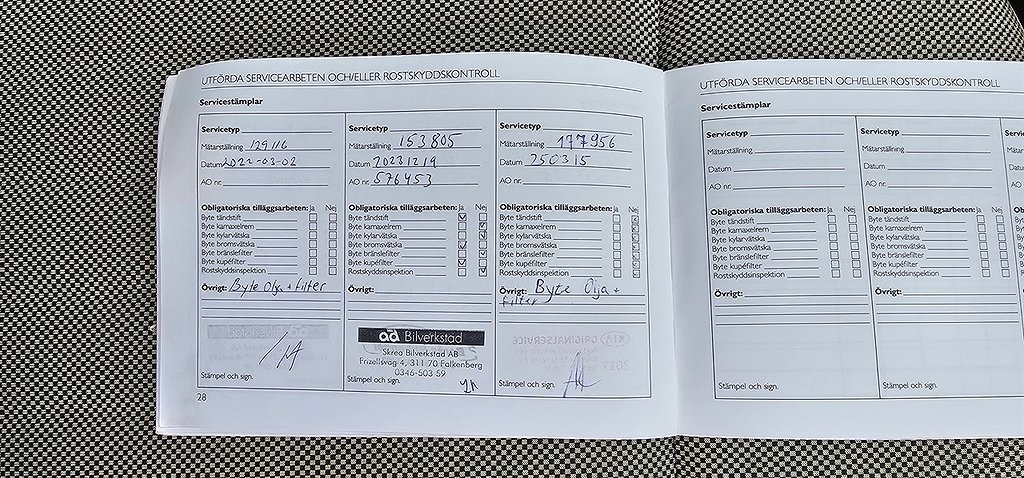 UTFÖRDA SERVICEARBETEN OCH/ELLER ROSTSKYDDSKONTROLL
Servicestämplar
Servicetyp
Mätarställning 129116
Datum 2022-03-02
AO nr.
Obligatoriska tilläggsarbeten: Ja Nej
Byte tändstift
Byte kamaxelrem
Byte kylarvätska
Byte bromsvätska
Byte bränslefilter
Byte kupéfilter
Rostskyddsinspektion
Övrigt: Byte Olja + filter
Stämpel och sign.
28
Servicetyp
Mätarställning 153805
Datum 20231219
AO nr. 576453
Obligatoriska tilläggsarbeten: Ja Nej
Byte tändstift
Byte kamaxelrem
Byte kylarvätska
Byte bromsvätska
Byte bränslefilter
Byte kupéfilter
Rostskyddsinspektion
Övrigt:
ad Bilverkstad
Skrea Bilverkstad AB
Frizellsväg 4, 311 70 Falkenberg
0346-503 59
Stämpel och sign.
Servicetyp
Mätarställning 177956
Datum 250315
AO nr.
Obligatoriska tilläggsarbeten: Ja Nej
Byte tändstift
Byte kamaxelrem
Byte kylarvätska
Byte bromsvätska
Byte bränslefilter
Byte kupéfilter
Rostskyddsinspektion
Övrigt: Byte Olja +
filter
KIA ORIGINALSERVICE
2017
Stämpel och sign.
UTFÖRDA SERVICEARBETEN OCH/ELLER ROSTSKYDDSKONTROLL
Servicestämplar
Servicetyp
Mätarställning
Datum
AO nr.
Obligatoriska tilläggsarbeten: Ja Nej
Byte tändstift
Byte kamaxelrem
Byte kylarvätska
Byte bromsvätska
Byte bränslefilter
Byte kupéfilter
Rostskyddsinspektion
Övrigt:
Stämpel och sign.
Servicetyp
Mätarställning
Datum
AO nr.
Obligatoriska tilläggsarbeten: Ja Nej
Byte tändstift
Byte kamaxelrem
Byte kylarvätska
Byte bromsvätska
Byte bränslefilter
Byte kupéfilter
Rostskyddsinspektion
Övrigt:
Stämpel och sign.